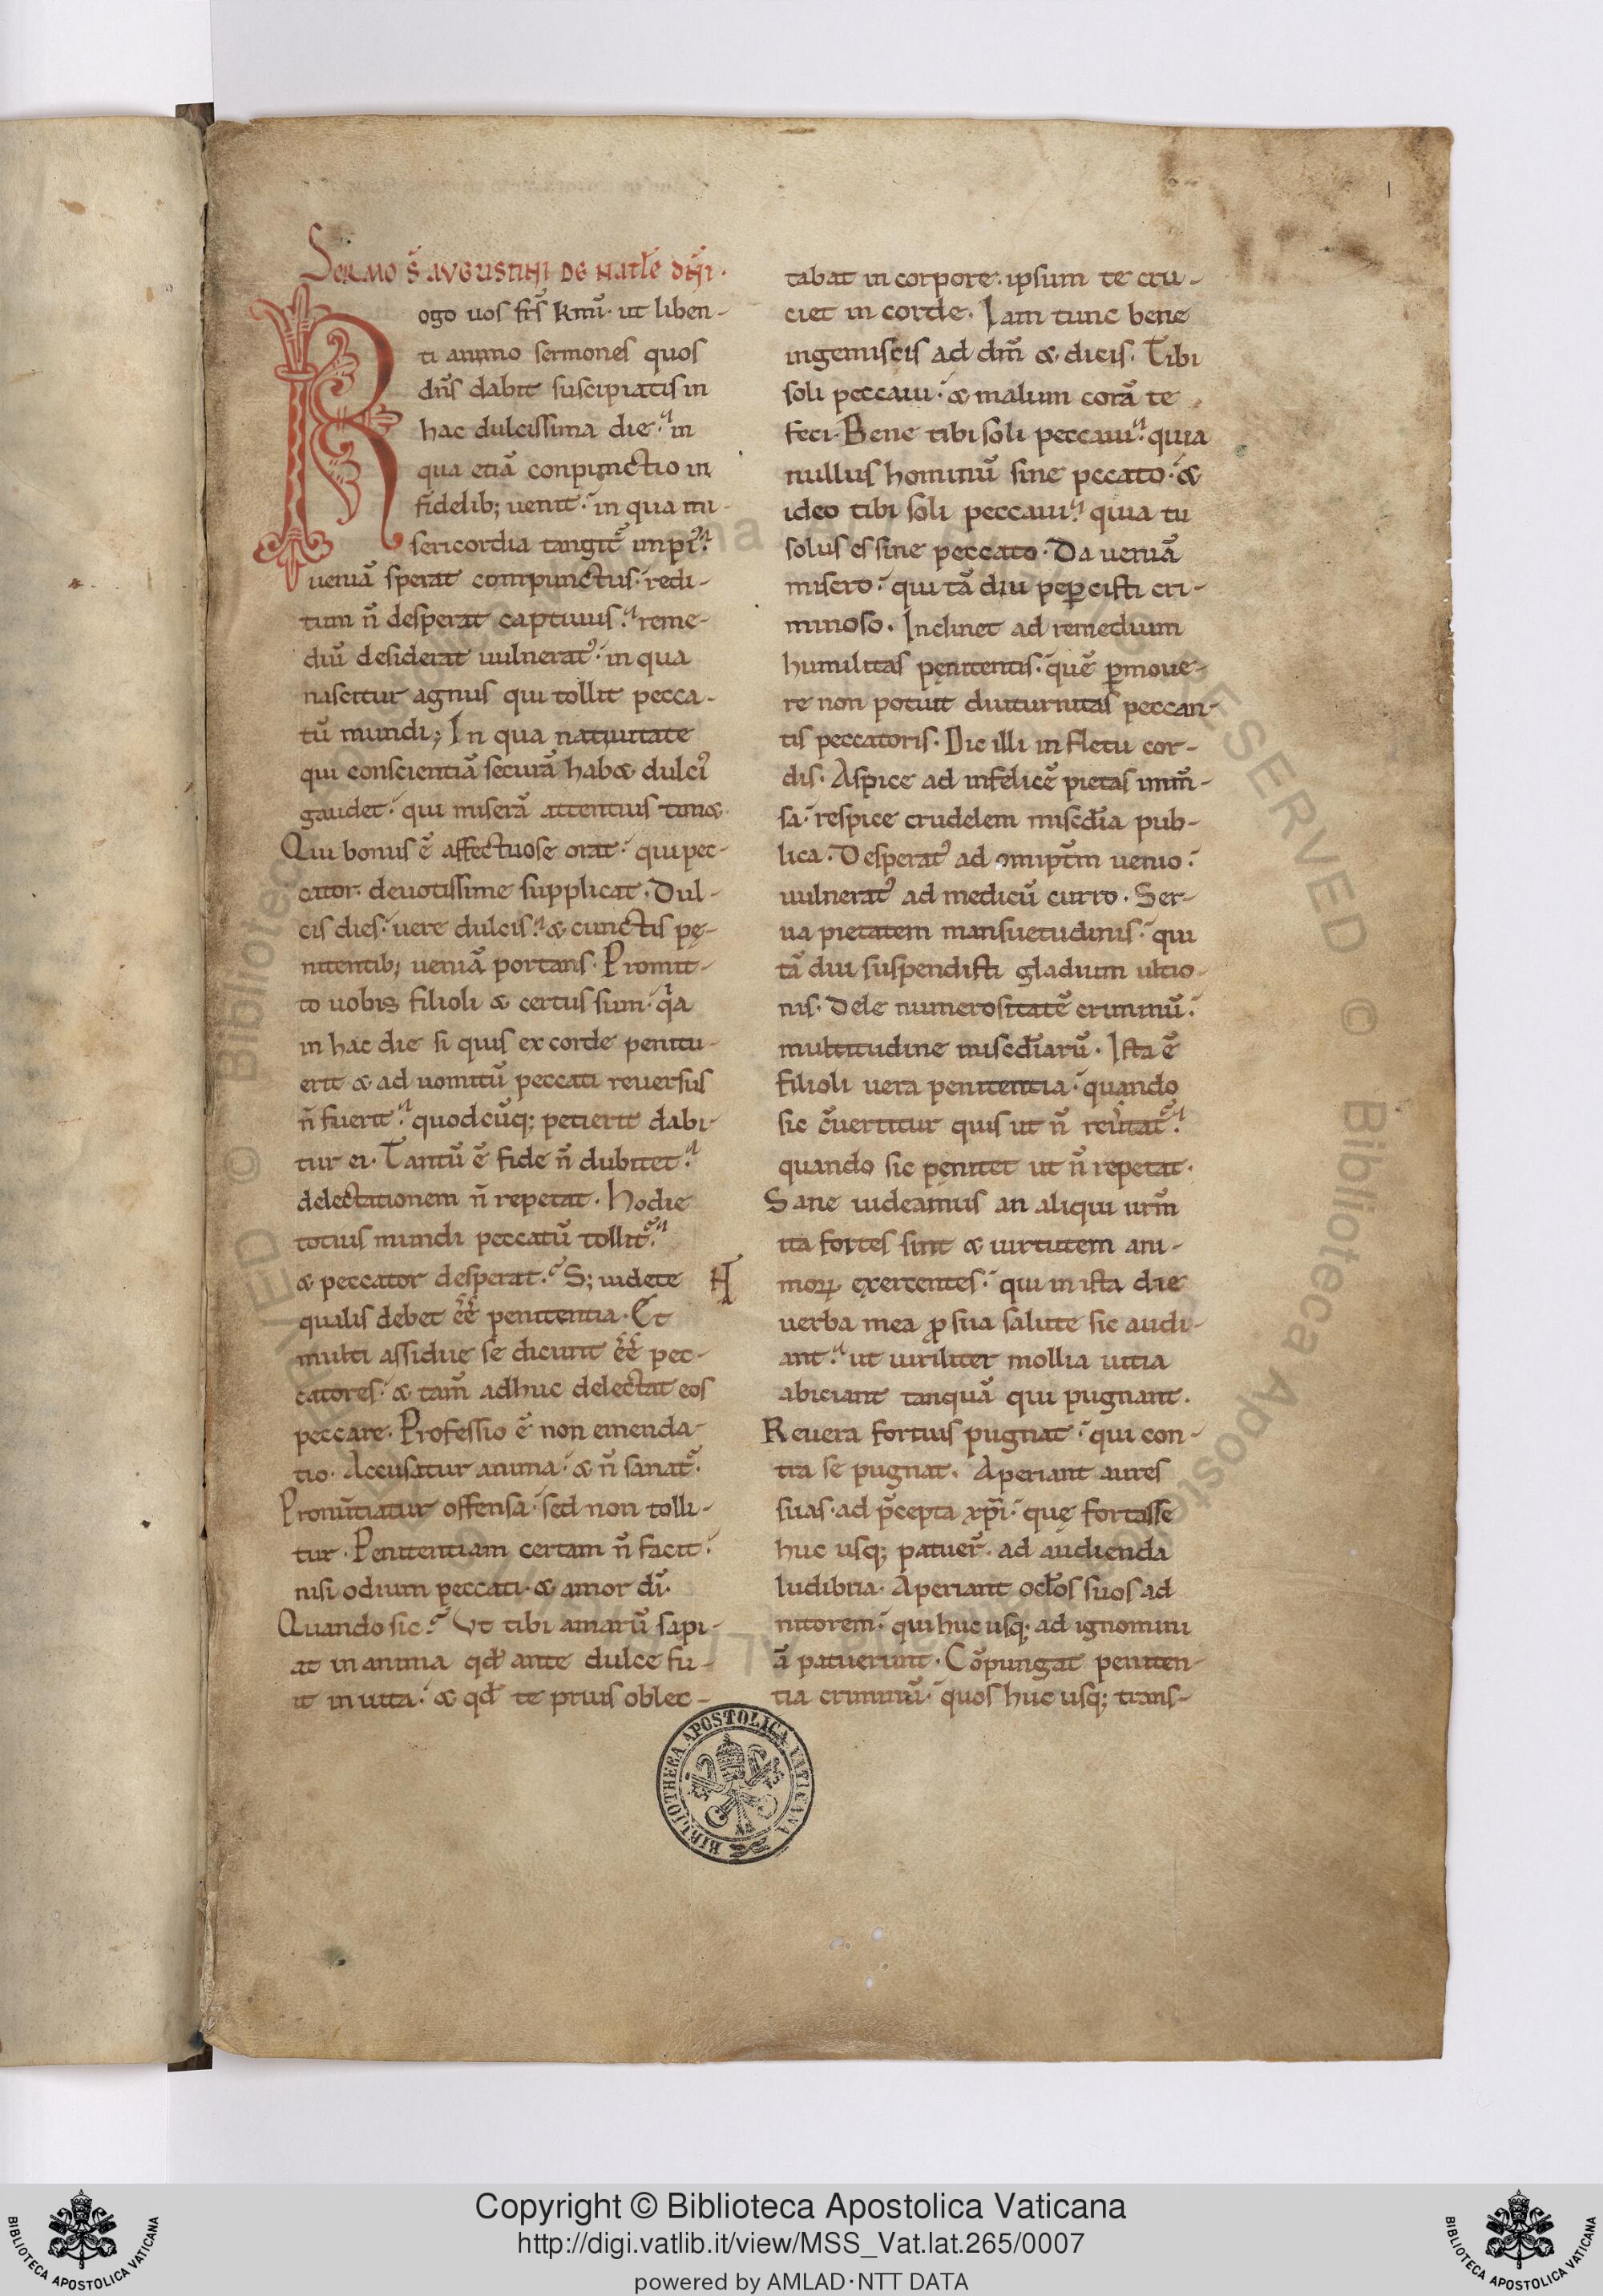 1
Sermo S̃ AVGUSTINI DE NATLE DÑI.
Rogo uos frs̃ kmĩ. ut liben-
ti animo sermones quos
dñs dabit suscipiatis in
hac dulcissima die. in
qua etiã conpunctio in
fidelib; uenit. in qua mi-
sericordia tangit̃ impi᷒.
ueniã sperat compunctus. redi-
tum ñ desperat captiuus. reme-
diũ desiderat uulnerat᷒. in qua
nascitur agnus qui tollit pecca-
tũ mundi; In qua natiuitate
qui conscientiã securã hab& dulci᷒
gaudet. qui miserã attentius tim&.
Qui bonus ẽ affectuose orat. qui pec-
cator deuotissime supplicat. Dul-
cis dies. uere dulcis. & cunctis pę-
nitentib; ueniã portans. Promit-
to uobis filioli & certus sum. qͥa
in hac die si quis ex corde penitu-
erit & ad uomitũ peccati reuersus
ñ fuerit. quodcũq; petierit dabi-
tur ei. Tantũ ẽ fide ñ dubitet.
delectationem ñ repetat. Hodie
totius mundi peccatũ tollit̃.
& peccator desperat. S; uidete
qualis debet ẽẽ penitentia. Et
multi assidue se dicunt ẽẽ pec-
catores. & tam̃ adhuc delectat eos
peccare. Professio ẽ non emenda-
tio. Accusatur anima. & ñ sanat̃.
Pronũtiatur offensa. sed non tolli-
tur. Penitentiam certam ñ facit.
nisi odium peccati. & amor dĩ.
Quando sic. Ut tibi amarũ sapi-
at in anima qđ ante dulce fu-
it in uita. & qđ te prius oblec-
tabat in corpore. ipsum te cru-
ciet in corde. Iam tunc bene
ingemiscis ad dm̃ & dicis. Tibi
soli peccaui. & malum corã te
feci. Bene tibi soli peccaui. quia
nullus hominũ sine pccato. &
ideo tibi soli peccaui. quia tu
solus es sine peccato. Da ueniã
misero. qui tã diu peꝑcisti cri-
minoso. Inclinet ad remedium
humilitas pęnitentis. quẽ ꝑmoue-
re non potuit diuturnitas peccan-
tis peccatoris. Dic illi in fletu cor-
dis. Aspice ad infelicẽ pietas imm̃-
sa. respice crudelem misc̃dia pub-
lica. Desperat᷒ ad omiptm̃ uenio.
uulnerat᷒ ad medicũ curro. Ser-
ua pietatem mansuetudinis. qui
tã diu suspendisti gladium ultio-
nis. Dele numerositatẽ criminũ.
multitudine misc̃diarũ. Ista ẽ
filioli uera penitentia. quando
sic c̃uertitur quis ut ñ reũtat̃.
quando sic pęnitet ut ñ repetat.
Sane uideamus an aliqui urm̃
ita fortes sint & uirtutem ani-
moꝝ exercentes. qui in ista die
uerba mea ꝓ sua salute sic audi-
ant. ut uiriliter mollia uitia
abiciant tanquã qui pugnant.
Reuera fortius pugnat. qui con-
tra se pugnat. Aperiant aures
suas. ad p̃cepta xp̃i. quę fortasse
huc usq; patuer̃. ad audienda
ludibria. Aperiant ocl̃os suos ad
nitorem. qui huc usq. ad ignomini
ã patuerunt. Cõpungat peniten-
tia criminũ. quos huc usq; trans-
BIBLIOTHECA APOSTOLICA VATICANA
© Biblioteca Apostolica Vaticana ALL RIGHTS RESERVED
Copyright © Biblioteca Apostolica Vaticana
http://digi.vatlib.it/view/MSS_Vat.lat.265/0007
powered by AMLAD·NTT DATA
BIBLIOTECA APOSTOLICA VATICANA
BIBLIOTECA APOSTOLICA VATICANA